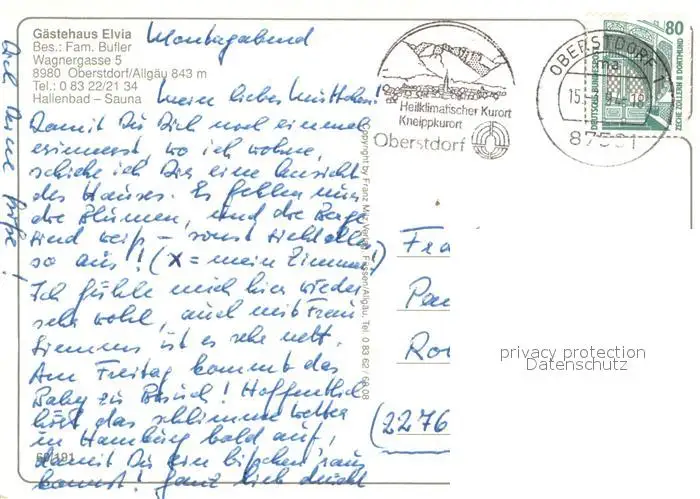 Gästehaus Elvia
Bes.: Fam. Bufler
Wagnergasse 5
8980 Oberstdorf/Allgäu 843 m
Tel.: 0 83 22/21 34
Hallenbad – Sauna
Montagabend
Mein liebes Muttchen!
Damit Du Dich noch einmal
erinnerst, wo ich wohne,
schicke ich Dir eine Ansicht
des Hauses. Es fehlen nur
die Blumen, und die Berge
sind weiß – sonst sieht alles
so aus! (x = mein Zimmer!)
Ich fühle mich hier wieder
sehr wohl, auch mit Frau
Siemens ist es sehr nett.
Am Freitag kommt das
Baby zu Besuch! Hoffentlich
hört das schlimme Wetter
in Hamburg bald auf,
damit Du ein bißchen raus
kommst! Ganz lieb drückt
Dich Deine
60 191
Copyright by Franz Milz Verlag Füssen/Allgäu, Tel. 0 83 62 / 68 08
Heilklimatischer Kurort
Kneippkurort
Oberstdorf
OBERSTDORF 1
87561
80
DEUTSCHE BUNDESPOST
ZECHE ZOLLERN II DORTMUND
Fra
Ro
(2276
privacy protection
Datenschutz